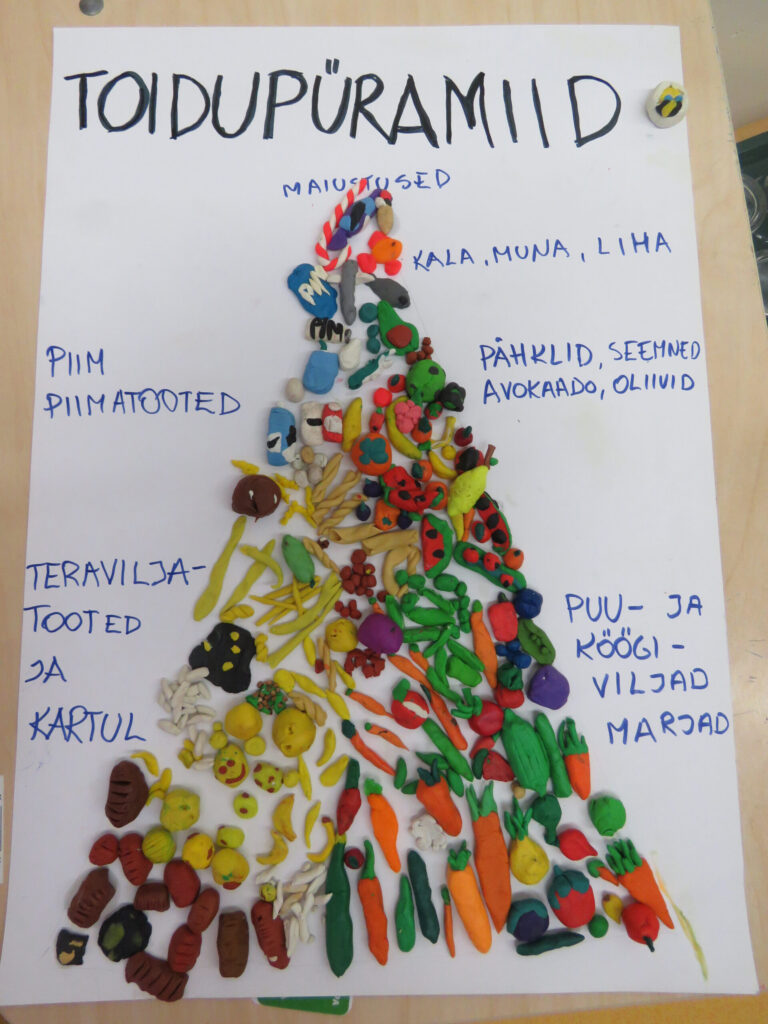 TOIDUPÜRAMIID
MAIUSTUSED
KALA, MUNA, LIHA
PIIM
PIIM
PIIMATOOTED
PÄHKLID, SEEMNED
AVOKAADO, OLIIVID
TERAVILJA-
TOOTED
JA
KARTUL
PUU- JA
KÖÖGI-
VILJAD
MARJAD